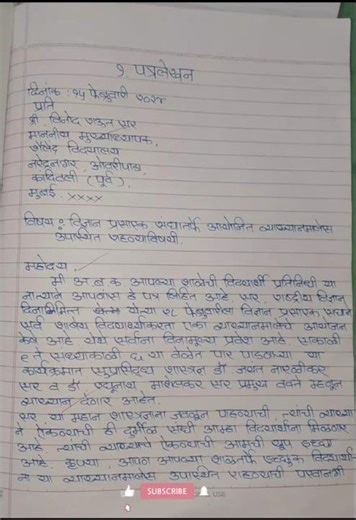 १ पत्रलेखन
दिनांक : १५ फेब्रुवारी २०२४
प्रति
श्री विनोद राऊत सर
माननीय मुख्याध्यापक,
विद्यालय
नरेंद्रनगर,
(पूर्व),
मुंबई - xxxx
विषय : विज्ञान प्रसारक संघातर्फे आयोजित व्याख्यानमालेस
उपस्थित राहण्याविषयी.
महोदय,
मी अ. ब. क आपल्या शाळेची विद्यार्थी प्रतिनिधी या
नात्याने आपणास हे पत्र लिहित आहे सर, राष्ट्रीय विज्ञान
दिनानिमित्त येत्या २८ फेब्रुवारीला विज्ञान प्रसारक संघाने
सर्व शालेय विद्यार्थ्यांकरिता एका व्याख्यानमालेचे आयोजन
केले आहे येथे सर्वांना विनामूल्य प्रवेश आहे सकाळी
९ ते संध्याकाळी ६ या वेळेत पार पाडणाऱ्या या
कार्यक्रमात सुप्रसिद्ध शास्त्रज्ञ डॉ जयंत नारळीकर
सर व डॉ. रघुनाथ माशेलकर सर प्रमुख वक्ते म्हणून
व्याख्यान देणार आहेत.
सर या महान शास्त्रज्ञांना जवळून पाहण्याची, त्यांची व्याख्या
ने ऐकण्याची ही दुर्मीळ संधी आम्हा विद्यार्थ्यांना मिळणार
आहे. त्यांची व्याख्याने ऐकण्याची आमची खूप इच्छा
आहे. कृपया, आपण आपल्या शाळेतर्फे इच्छुक विद्यार्थ्यां
ना या व्याख्यानमालेस उपस्थित राहण्याची परवानगी
SUBSCRIBE